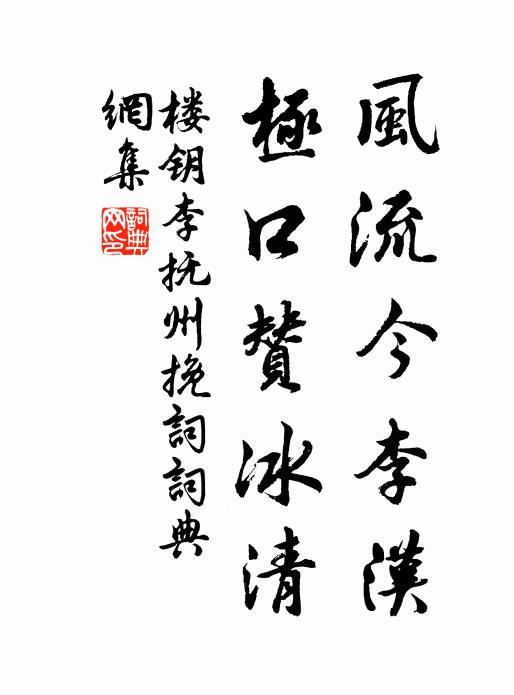 風流今李漢
極口贊冰清
楼钥李抚州挽詞詞典
網集
詞典网印